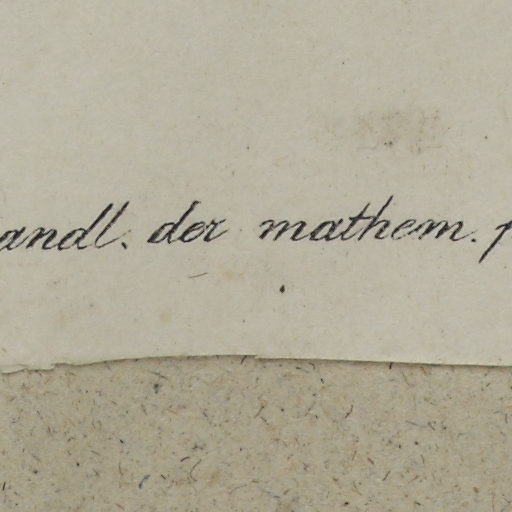 andl. der mathem. p